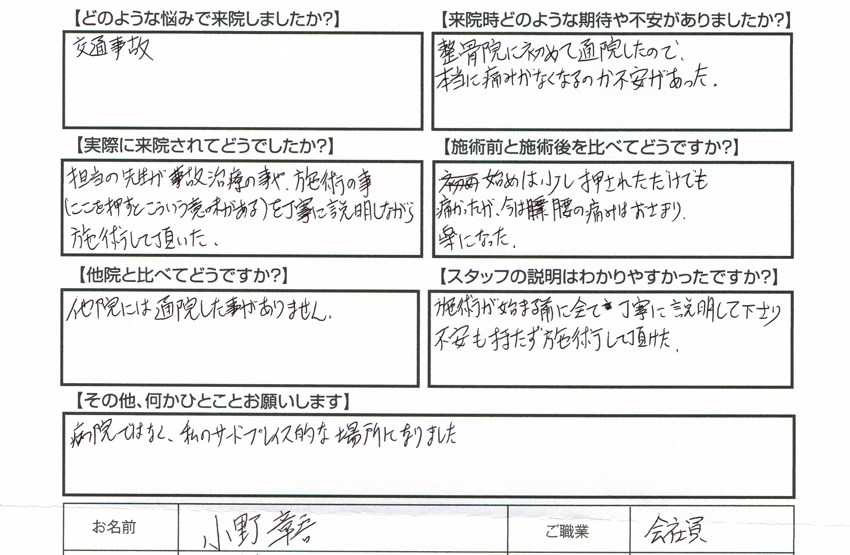 【どのような悩みで来院しましたか?】
交通事故
【来院時どのような期待や不安がありましたか?】
整骨院に初めて通院したので、
本当に痛みがなくなるのか不安があった.
【実際に来院されてどうでしたか?】
担当の先生が事故治療の事や、施術の事
(ここを押すとこういう意味がある)を丁寧に説明しながら
施術して頂いた.
【施術前と施術後を比べてどうですか?】
始めは少し押されただけでも
痛かったが、今は腰の痛みはおさまり.
楽になった.
【他院と比べてどうですか?】
他院には通院した事がありません.
【スタッフの説明はわかりやすかったですか?】
施術が始まる前に全て丁寧に説明して下さり
不安も持たず施術して頂けた.
【その他、何かひとことお願いします】
病院ではなく、私のサードプレイス的な場所になりました
お名前
小野
ご職業
会社員